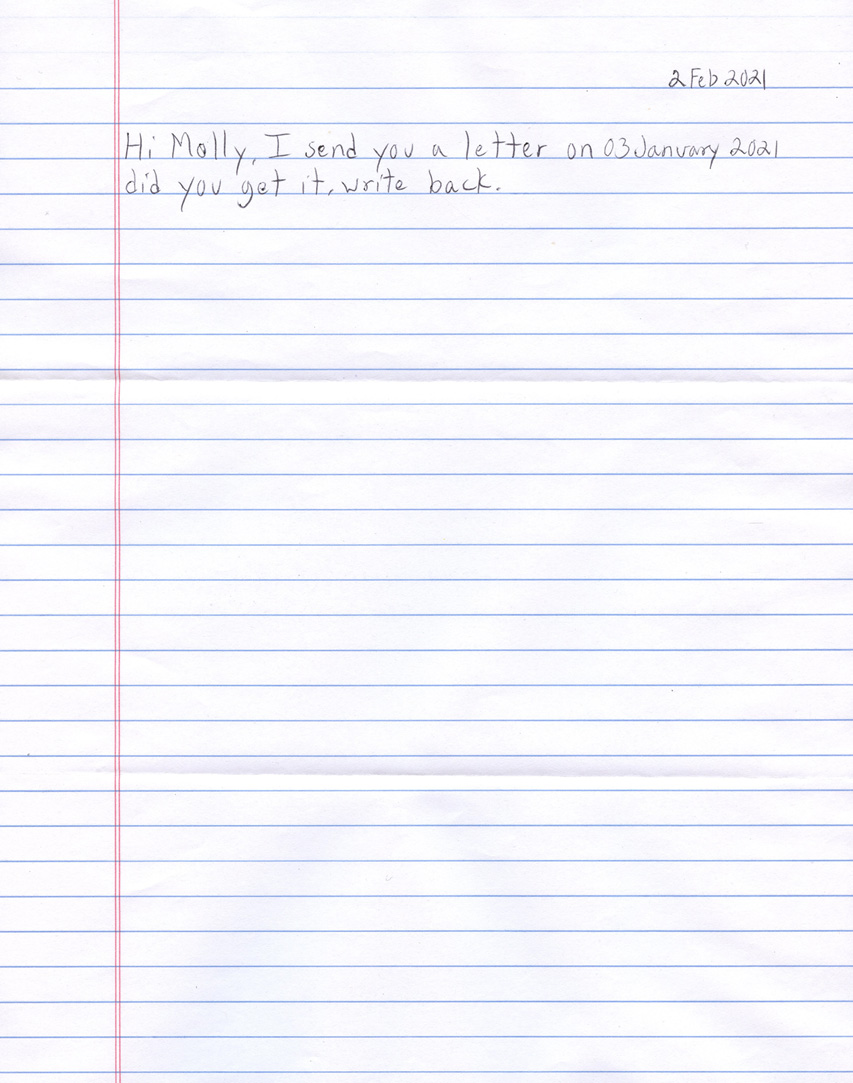 2 Feb 2021
Hi Molly, I send you a letter on 03 January 2021
did you get it, write back.